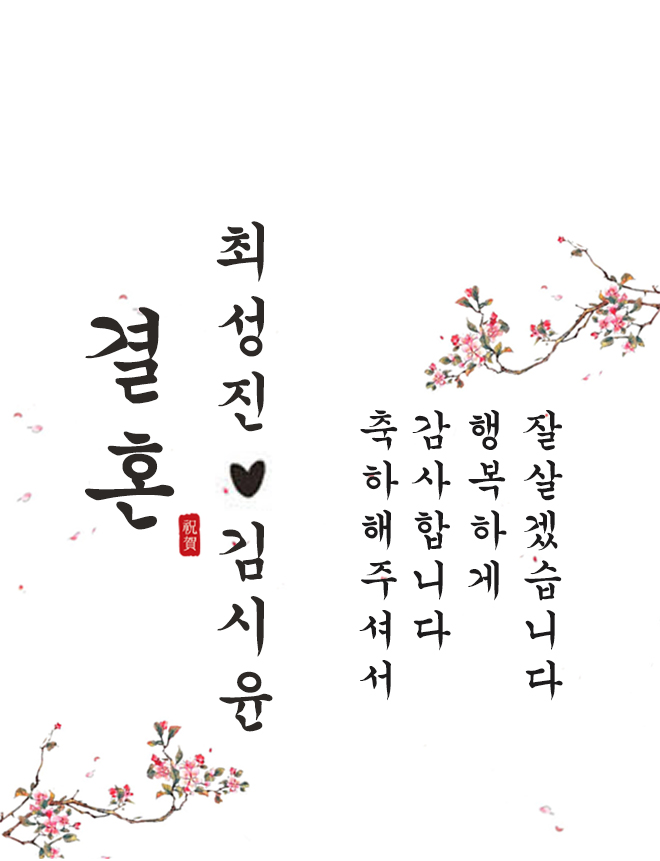 결혼
祝賀
최성진♥김시윤
축하해주셔서
감사합니다
행복하게
잘살겠습니다